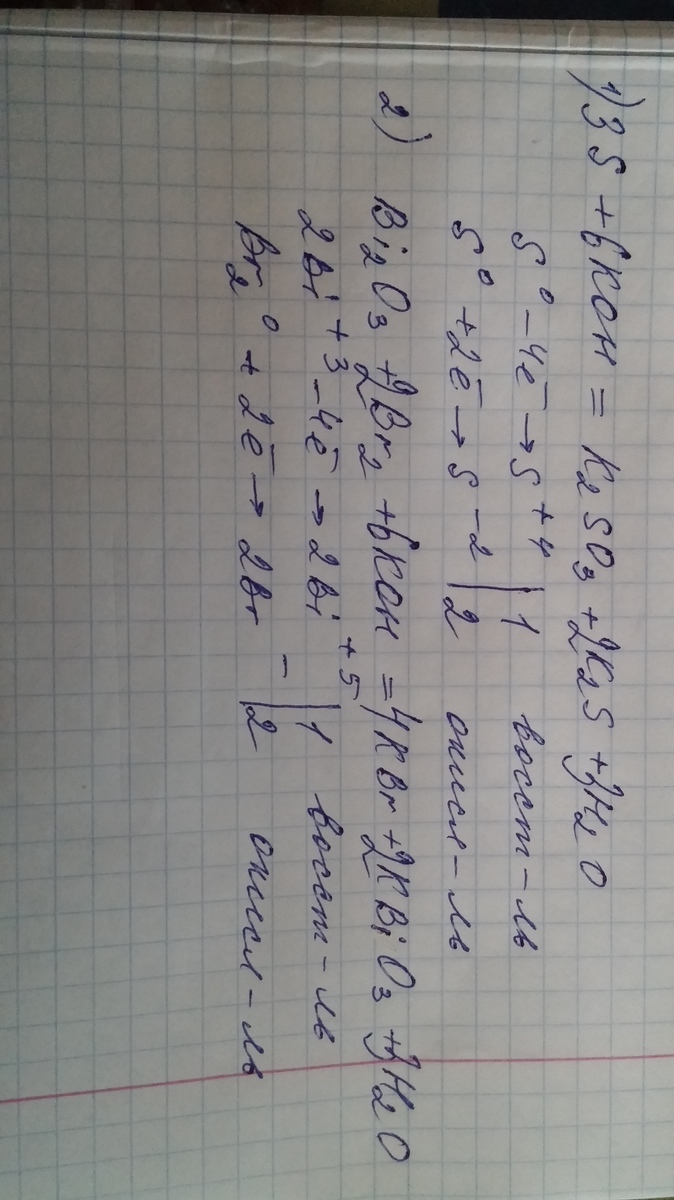 1) 3S + 6KOH = K₂SO₃ + 2K₂S + 3H₂O
S⁰ - 4ē → S⁺⁴ | 1 восст-ль
S⁰ + 2ē → S⁻² | 2 окисл-ль
2) Bi₂O₃ + 2Br₂ + 6KOH = 4KBr + 2KBiO₃ + 3H₂O
2Bi⁺³ - 4ē → 2Bi⁺⁵ | 1 восст-ль
Br₂⁰ + 2ē → 2Br⁻ | 2 окисл-ль